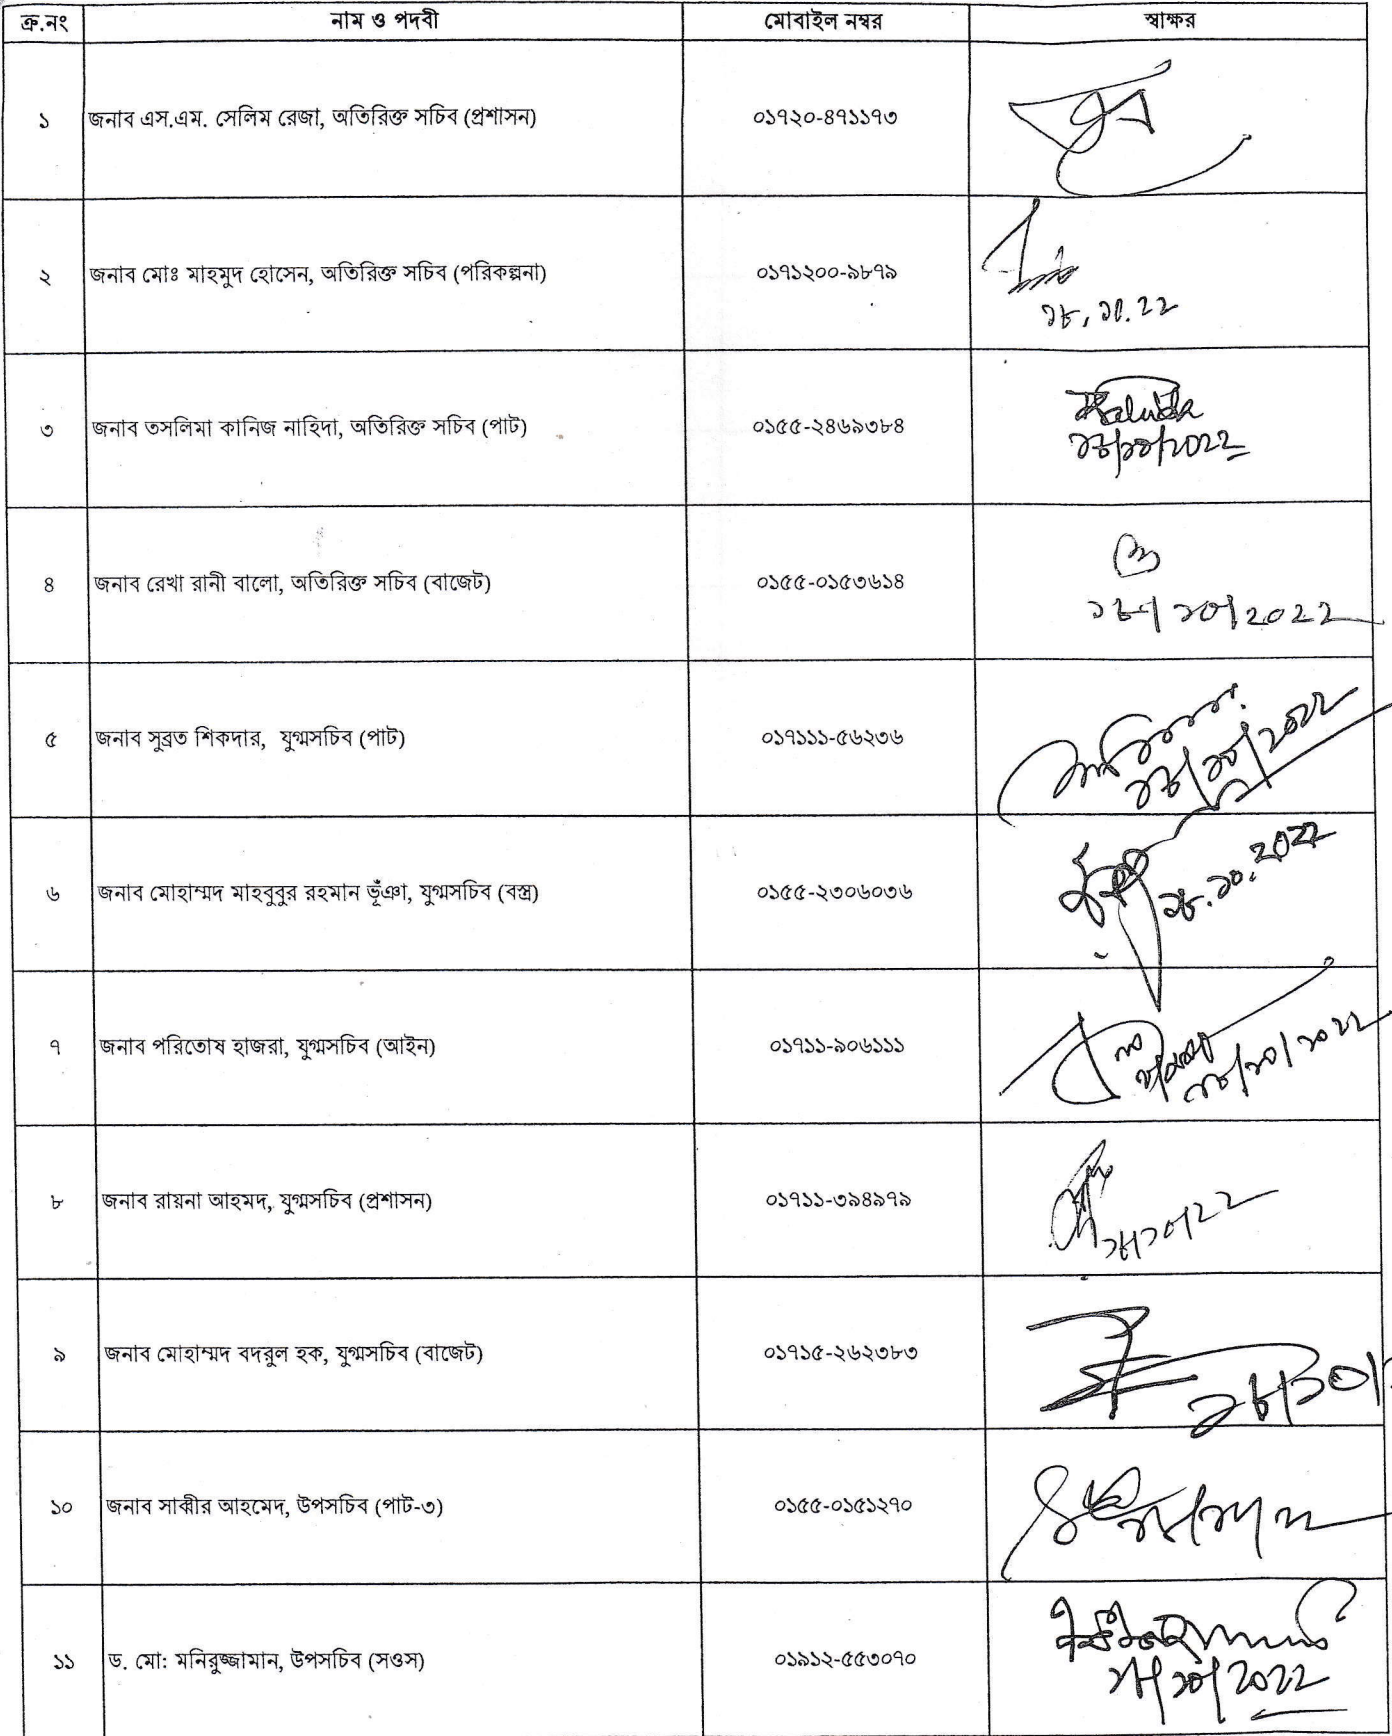 ক্র.নং নাম ও পদবী মোবাইল নম্বর স্বাক্ষর
১ জনাব এস.এম. সেলিম রেজা, অতিরিক্ত সচিব (প্রশাসন) ০১৭২০-৪৭১১৭৩
২ জনাব মোঃ মাহমুদ হোসেন, অতিরিক্ত সচিব (পরিকল্পনা) ০১৭১২০০-৯৮৭৯
১৮.১০.২২
৩ জনাব তসলিমা কানিজ নাহিদা, অতিরিক্ত সচিব (পাট) ০১৫৫-২৪৬৯৩৮৪
১৮/১০/২০২২
৪ জনাব রেখা রানী বালো, অতিরিক্ত সচিব (বাজেট) ০১৫৫-০১৫৩৬১৪
১৮/১০/২০২২
৫ জনাব সুব্রত শিকদার, যুগ্মসচিব (পাট) ০১৭১১১-৫৬২৩৬
১৮/১০/২০২২
৬ জনাব মোহাম্মদ মাহবুবুর রহমান ভূঁঞা, যুগ্মসচিব (বস্ত্র) ০১৫৫-২৩০৬০৩৬
১৮.১০.২০২২
৭ জনাব পরিতোষ হাজরা, যুগ্মসচিব (আইন) ০১৭১১-৯০৬১১১
১৮/১০/২০২২
৮ জনাব রায়না আহমদ, যুগ্মসচিব (প্রশাসন) ০১৭১১-৩৯৪৯৭৯
১৮/১০/২২
৯ জনাব মোহাম্মদ বদরুল হক, যুগ্মসচিব (বাজেট) ০১৭১৫-২৬২৩৮৩
১৮/১০/
১০ জনাব সাব্বীর আহমেদ, উপসচিব (পাট-৩) ০১৫৫-০১৫১২৭০
১১ ড. মো: মনিরুজ্জামান, উপসচিব (সওস) ০১৯১২-৫৫৩০৭০
১৮/১০/২০২২